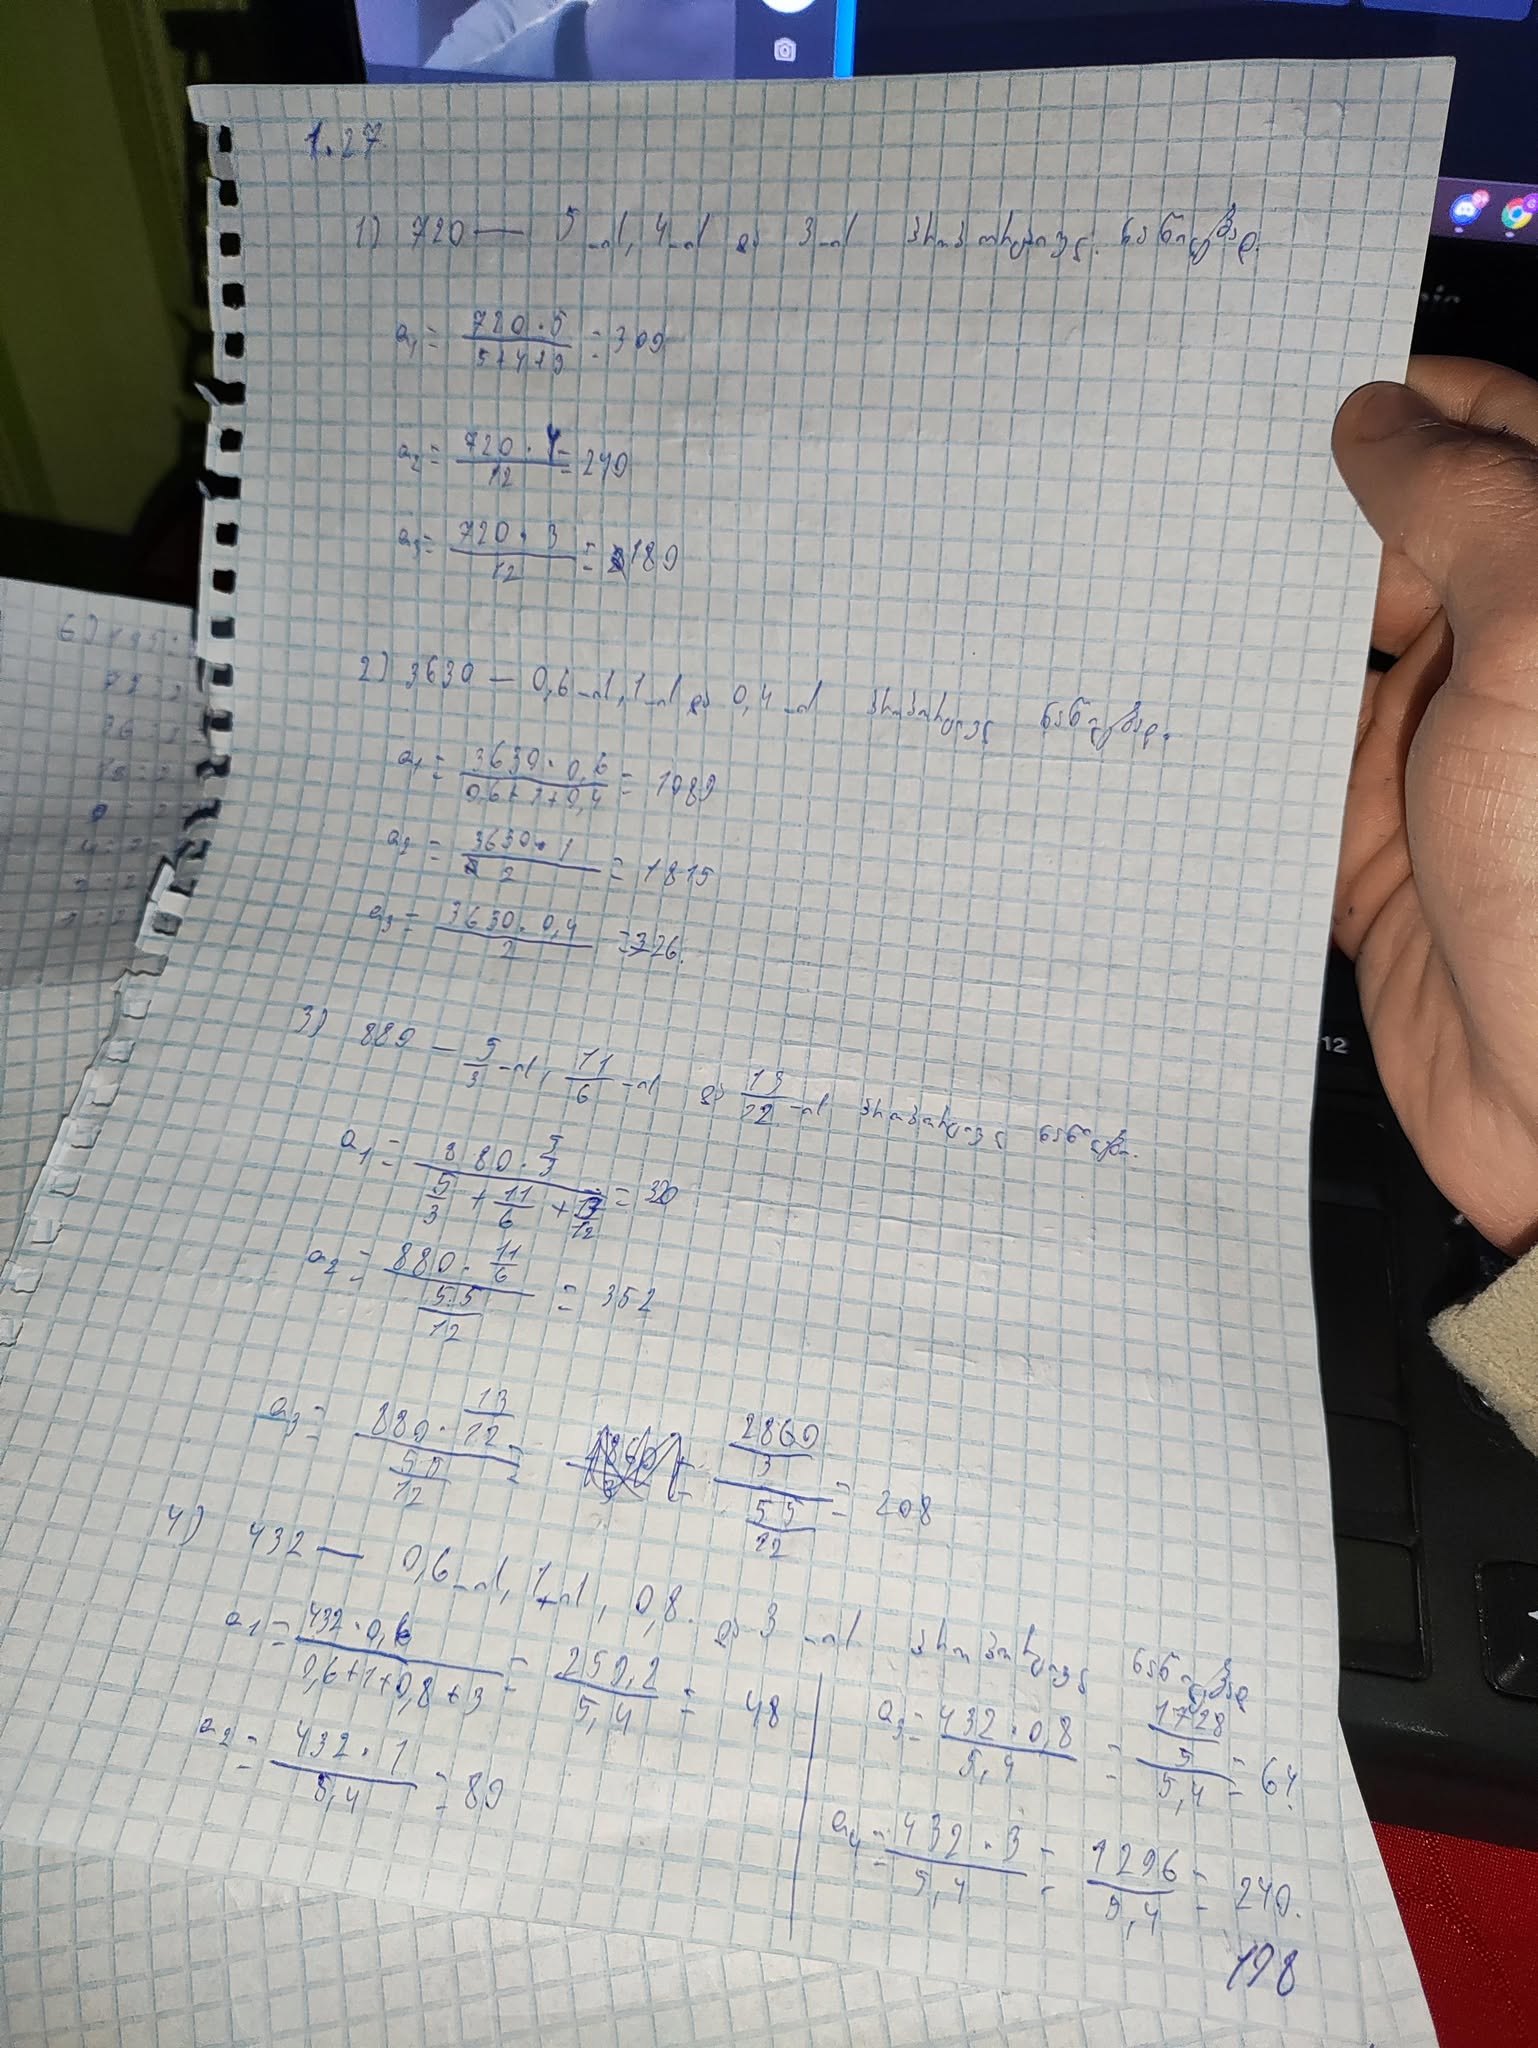 1.27
1) 720 — 5-ის, 4-ის და 3-ის პროპორციულ. ნაწილებად.
a₁ = (720·5)/(5+4+3) = 300
a₂ = (720·4)/12 = 240
a₃ = (720·3)/12 = 180
2) 3630 — 0,6-ის, 1-ის და 0,4-ის პროპორციულ ნაწილებად.
a₁ = (3630·0,6)/(0,6+1+0,4) = 1089
a₂ = (3630·1)/2 = 1815
a₃ = (3630·0,4)/2 = 326.
3) 880 — 5/3-ის, 11/6-ის და 13/12-ის პროპორციულ ნაწილებ.
a₁ = (880·5/3)/(5/3 + 11/6 + 13/12) = 320
a₂ = (880·11/6)/(55/12) = 352
a₃ = (880·13/12)/(55/12) = (2860/3)/(55/12) = 208
4) 432 — 0,6-ის, 1-ის, 0,8. და 3-ის პროპორციულ ნაწილებად
a₁ = (432·0,6)/(0,6+1+0,8+3) = 259,2/5,4 = 48
a₂ = (432·1)/5,4 = 80
a₃ = (432·0,8)/5,4 = (1728/5)/5,4 = 64.
a₄ = (432·3)/5,4 = 1296/5,4 = 240.
198
12